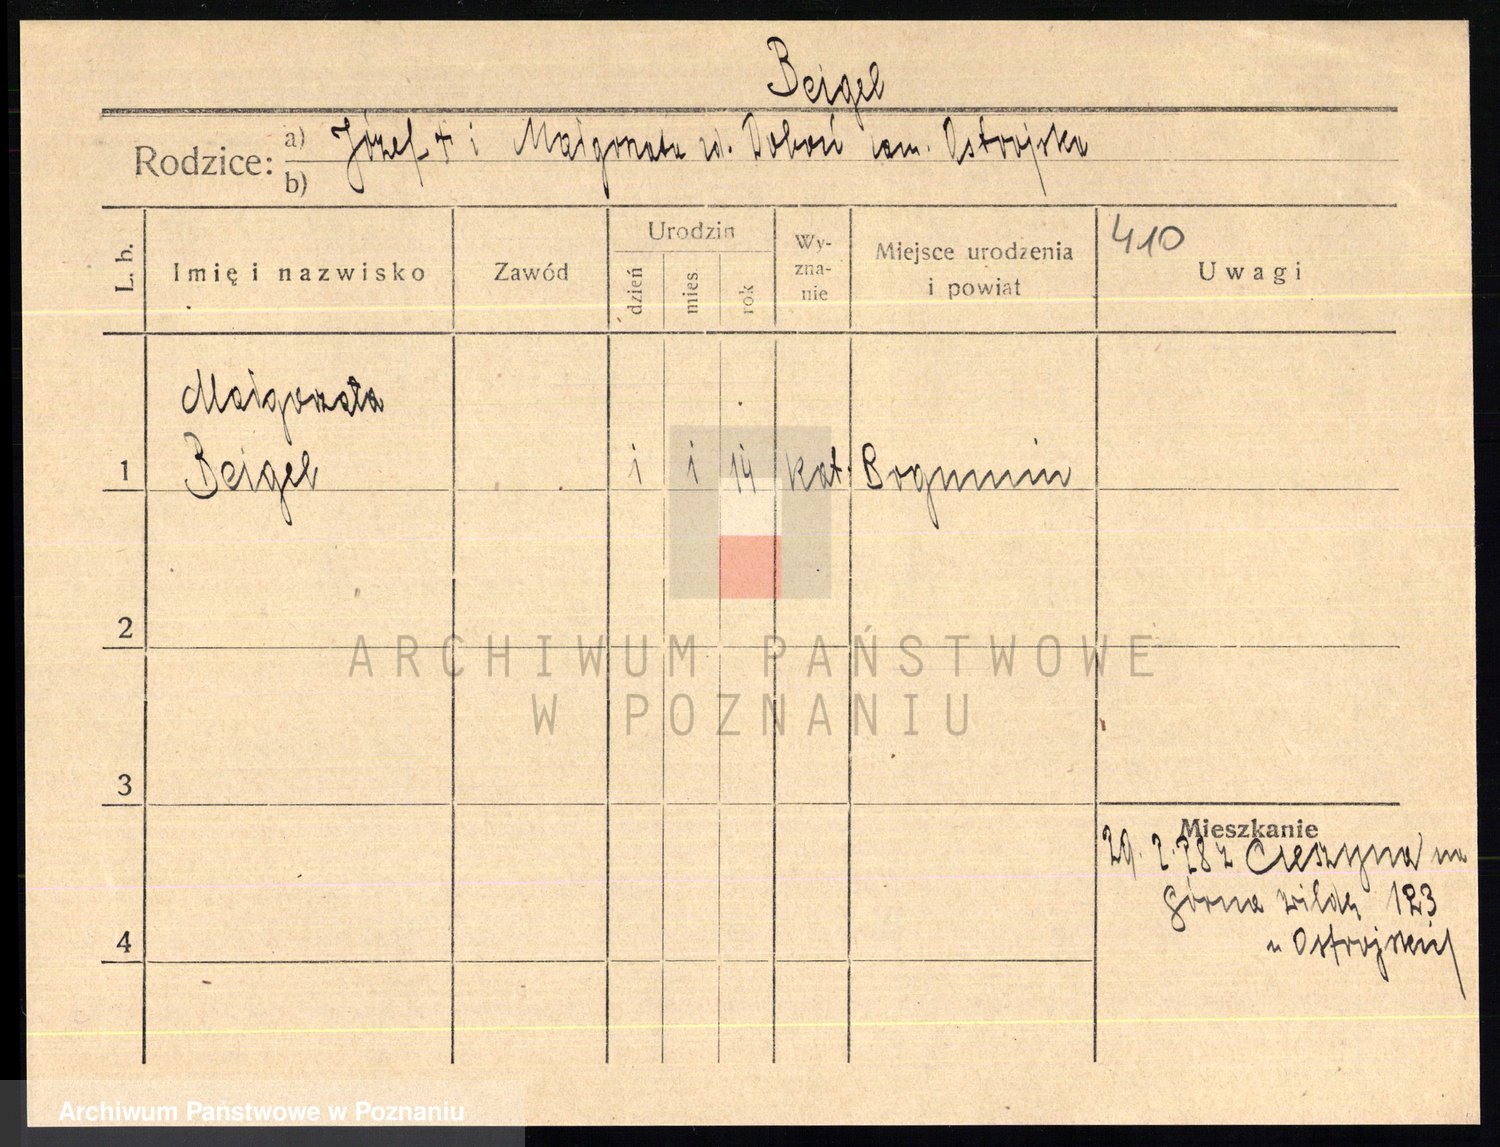 Beigel
Rodzice: a) Józef + i Małgorzata zd. Doboń zam. Ostrojska
b)
L. b.
Imię i nazwisko
Zawód
Urodzin
dzień
mies
rok
Wy-
zna-
nie
Miejsce urodzenia
i powiat
410
Uwagi
Małgorzata
1 Beigel 1 1 14 kat. Bogumin
2
3
4
Mieszkanie
29. 2. 28 z Cieszyna na
Górna Wilda 123
u Ostrojskich
ARCHIWUM PAŃSTWOWE
W POZNANIU
Archiwum Państwowe w Poznaniu